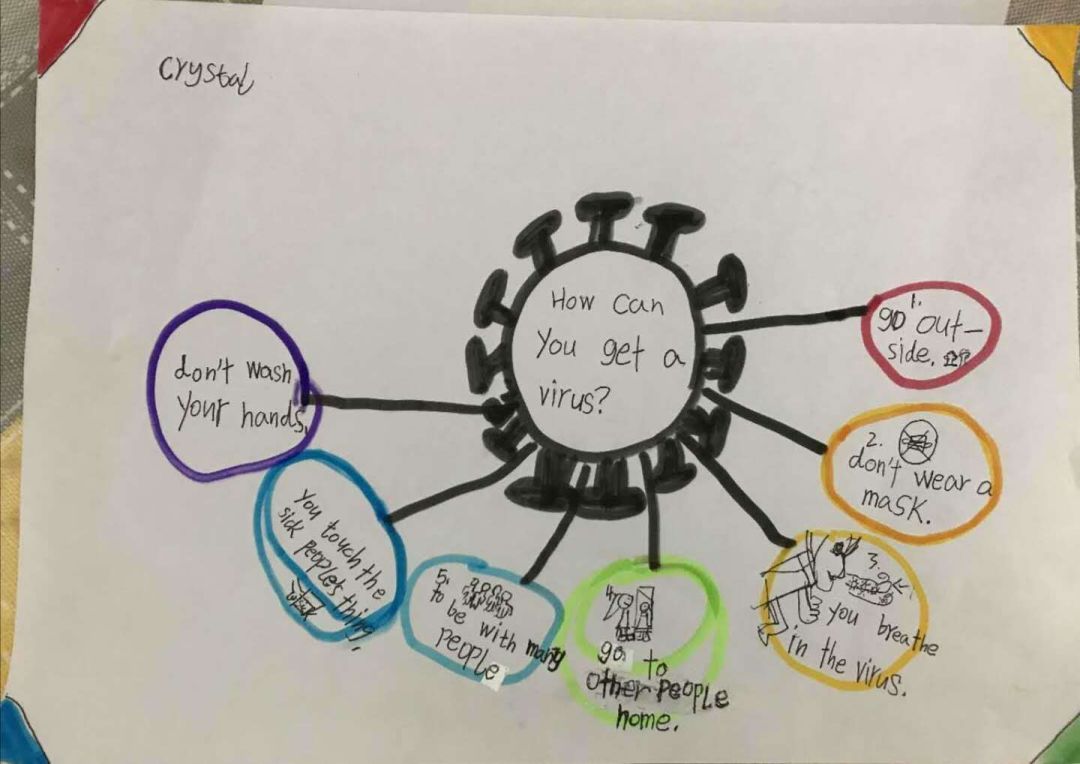 Crystal
How can
you get a
virus?
1.
go out-
side.
2.
don't wear a
mask.
3.
you breathe
in the virus.
4.
go to
other people
home.
5.
to be with many
people
you touch the
sick people's thing.
don't wash
your hands.